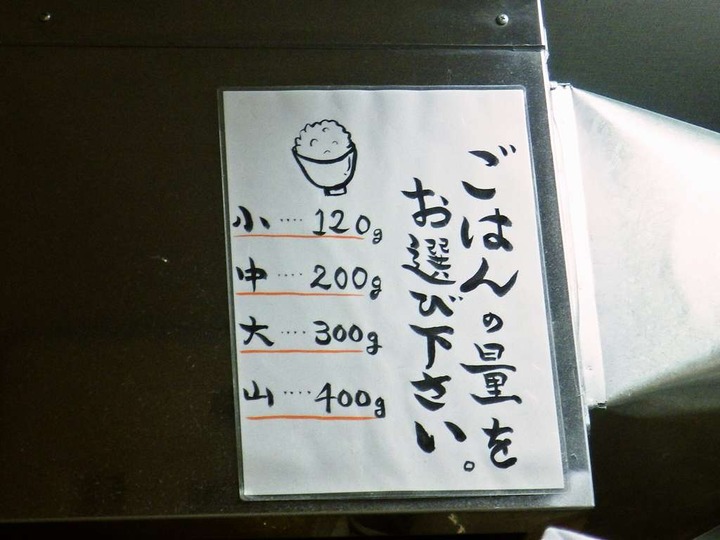 ごはんの量を
お選び下さい。
小‥‥120g
中‥‥200g
大‥‥300g
山‥‥400g